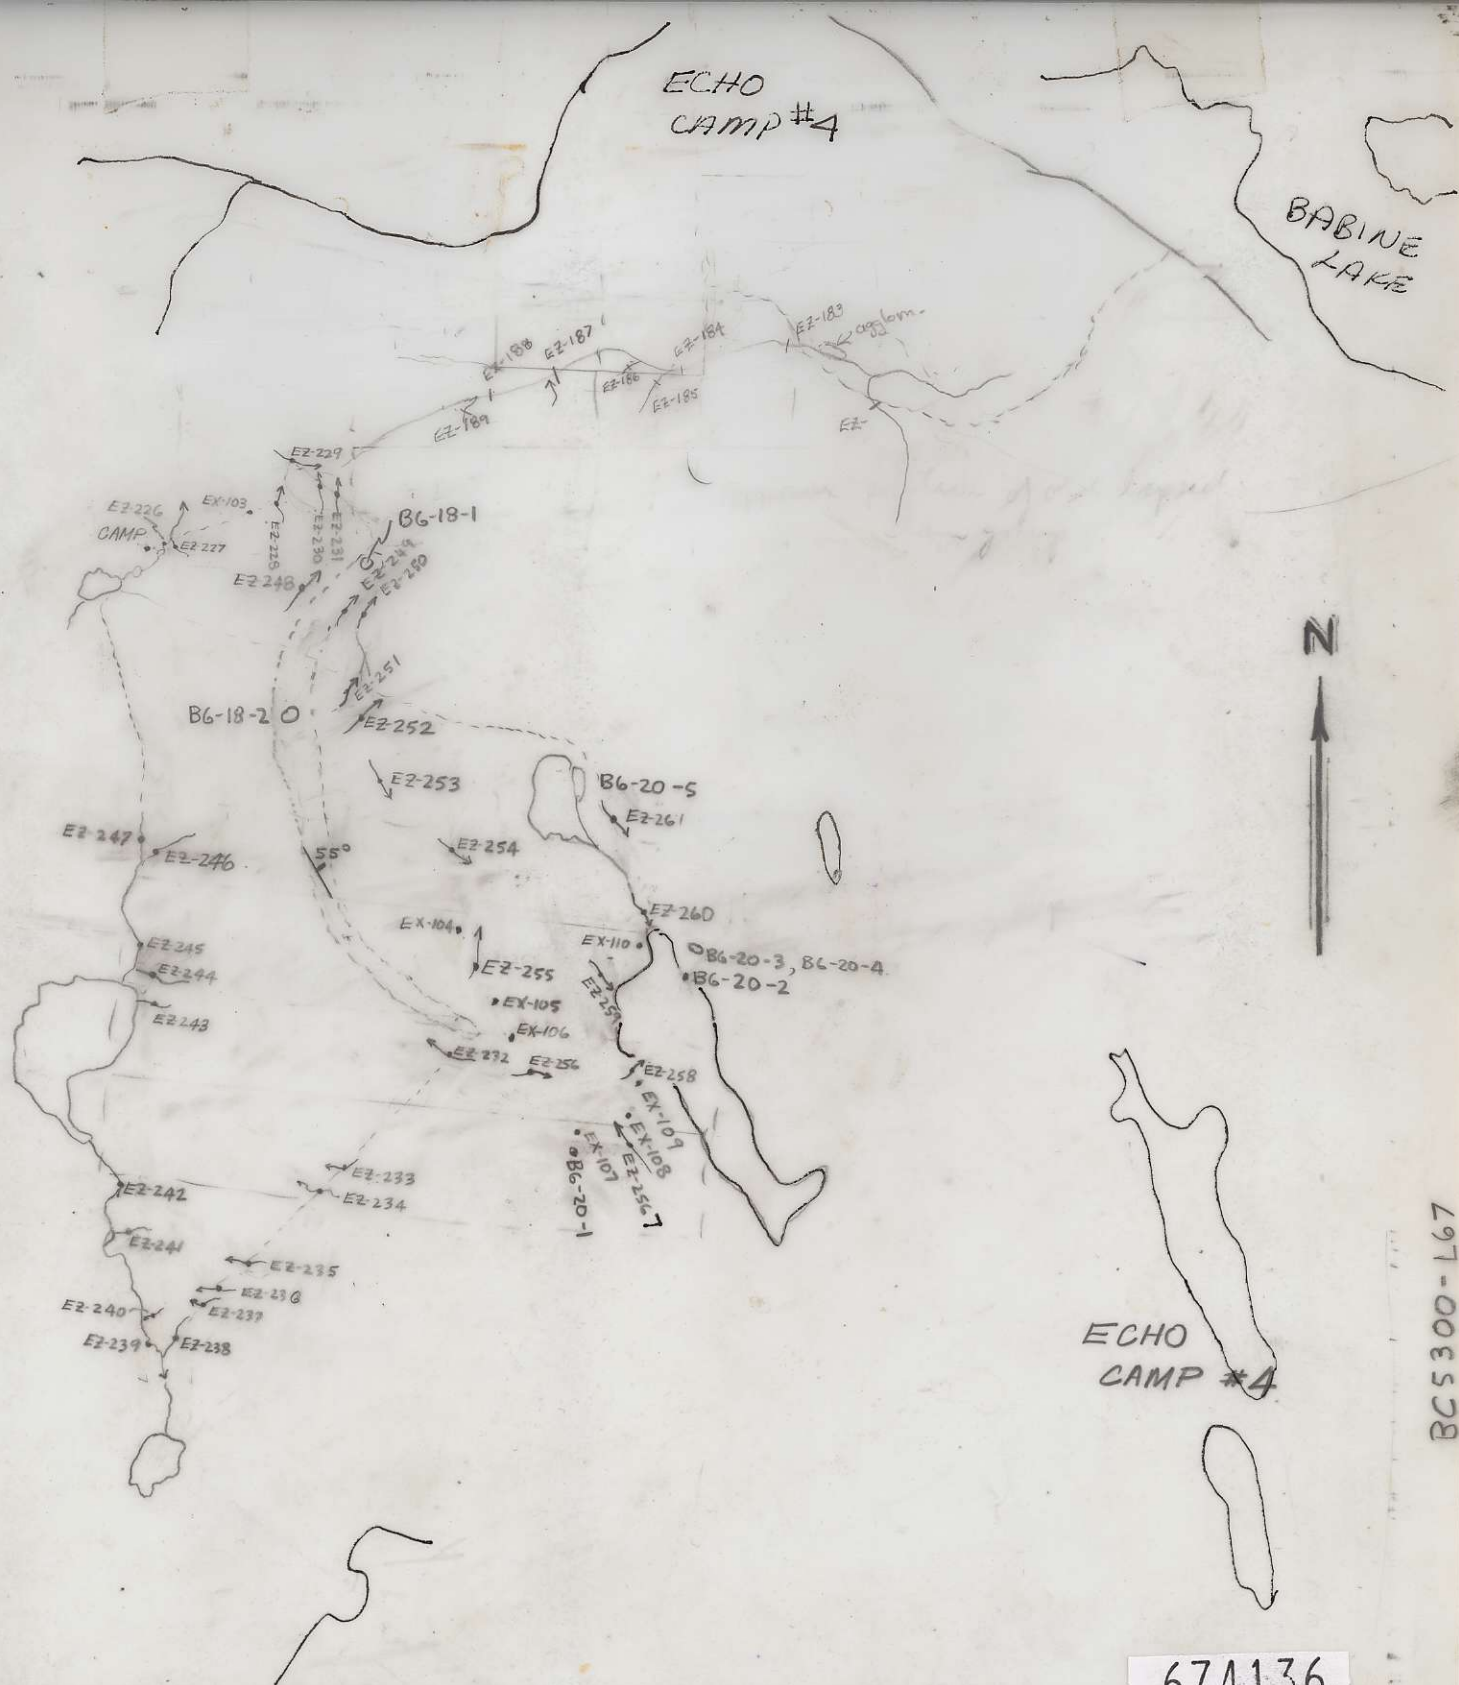 ECHO
CAMP #4
BABINE
LAKE
EZ-183
agglom.
EZ-184
EZ-187
EZ-188
EZ-186
EZ-185
EZ-189
EZ-
EZ-229
EX-103
EZ-226
CAMP
EZ-227
EZ-228
EZ-230
EZ-231
B6-18-1
EZ-249
EZ-250
EZ-248
N
EZ-251
B6-18-2
EZ-252
EZ-253
B6-20-5
EZ-261
EZ-247
EZ-246
55°
EZ-254
EZ-260
EX-104
EX-110
EZ-245
EZ-244
EZ-255
B6-20-3, B6-20-4
B6-20-2
EZ-259
EX-105
EZ-243
EX-106
EZ-232
EZ-256
EZ-258
EX-109
EX-108
EX-107
EZ-2567
B6-20-1
EZ-233
EZ-234
EZ-242
EZ-241
EZ-235
EZ-236
EZ-237
EZ-240
EZ-239
EZ-238
ECHO
CAMP #4
BC5300-L67
674136